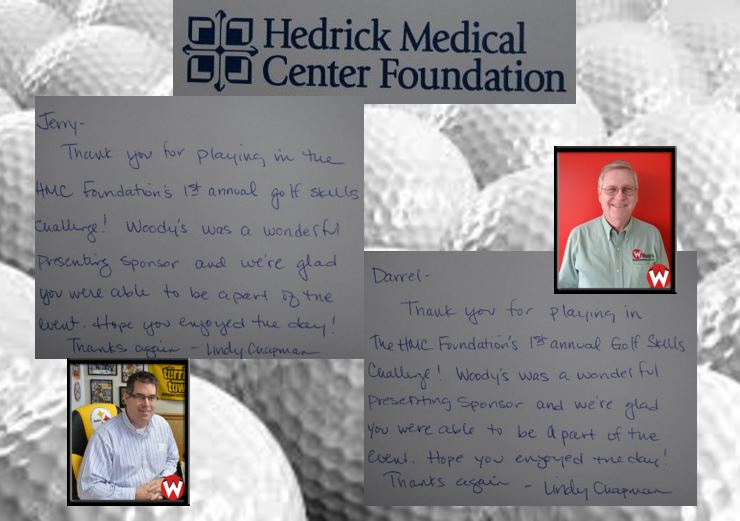 Hedrick Medical
Center Foundation
Jerry-
Thank you for playing in the
HMC Foundation's 1st annual golf skills
Challenge! Woody's was a wonderful
presenting sponsor and we're glad
you were able to be a part of the
event. Hope you enjoyed the day!
Thanks again - Lindy Chapman
Darrel-
Thank you for playing in
The HMC Foundation's 1st annual Golf Skills
Challenge! Woody's was a wonderful
presenting sponsor and we're glad
you were able to be a part of the
event. Hope you enjoyed the day!
Thanks again - Lindy Chapman
W
W